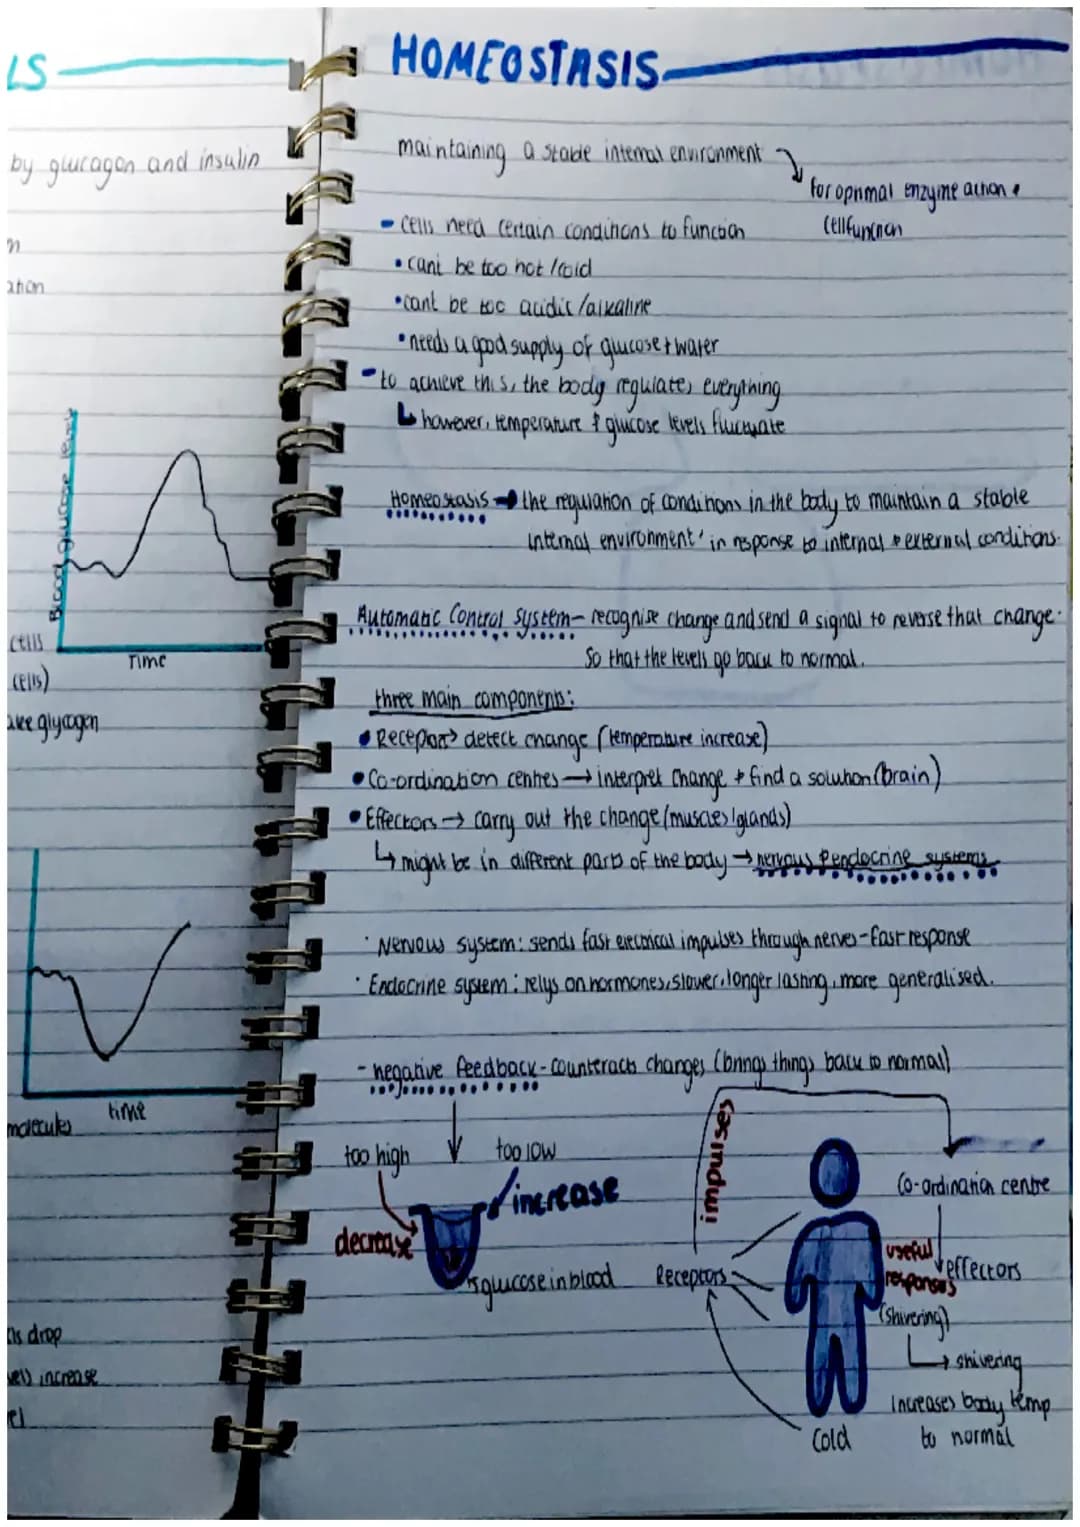 LS
by glucagon and insulin
n
ation
Blood glucose levels
Time
cells
(cells)
ake glycogen
time
molecules
els drop
vels increase
el
HOMEOSTASIS
maintaining a stable internal environment
for optimal enzyme action &
cell function
- cells need certain conditions to function
• cant be too hot/cold
• cant be too acidic/alkaline
• needs a good supply of glucose + water
- to achieve this, the body regulates everything
↳ however, temperature & glucose levels fluctuate
Homeostasis → the regulation of conditions in the body to maintain a stable
internal environment' in response to internal & external conditions.
Automatic Control System - recognise change and send a signal to reverse that change.
So that the levels go back to normal.
three main components:
• Receptors → detect change (temperature increase)
• Co-ordination centres → interpret change + find a solution (brain)
• Effectors → carry out the change (muscles/glands)
↳ might be in different parts of the body → nervous & endocrine systems
· Nervous system: sends fast electrical impulses through nerves - fast response
· Endocrine system: relys on hormones, slower, longer lasting, more generalised.
- negative feedback - counteracts changes (brings things back to normal)
too high
too low
increase
decrease
glucose in blood
impulses
Receptors
Co-ordination centre
useful
responses
effectors
(shivering)
↳ shivering
increases body temp
to normal
Cold